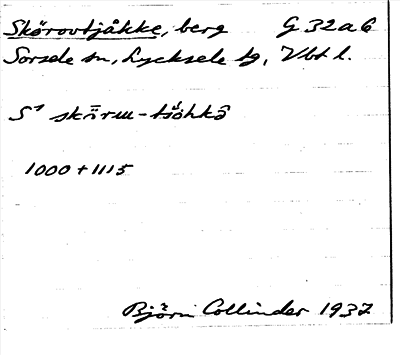 Skörovtjåkke, berg G 32a6
Sorsele sn, Lycksele tg, Vbt l.
1000 + 1115
Björn Collinder 1937